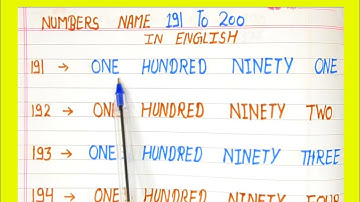 NUMBERS NAME 191 TO 200
IN ENGLISH
191 → ONE HUNDRED NINETY ONE
192 → ONE HUNDRED NINETY TWO
193 → ONE HUNDRED NINETY THREE
194 → ONE HUNDRED NINETY FOUR